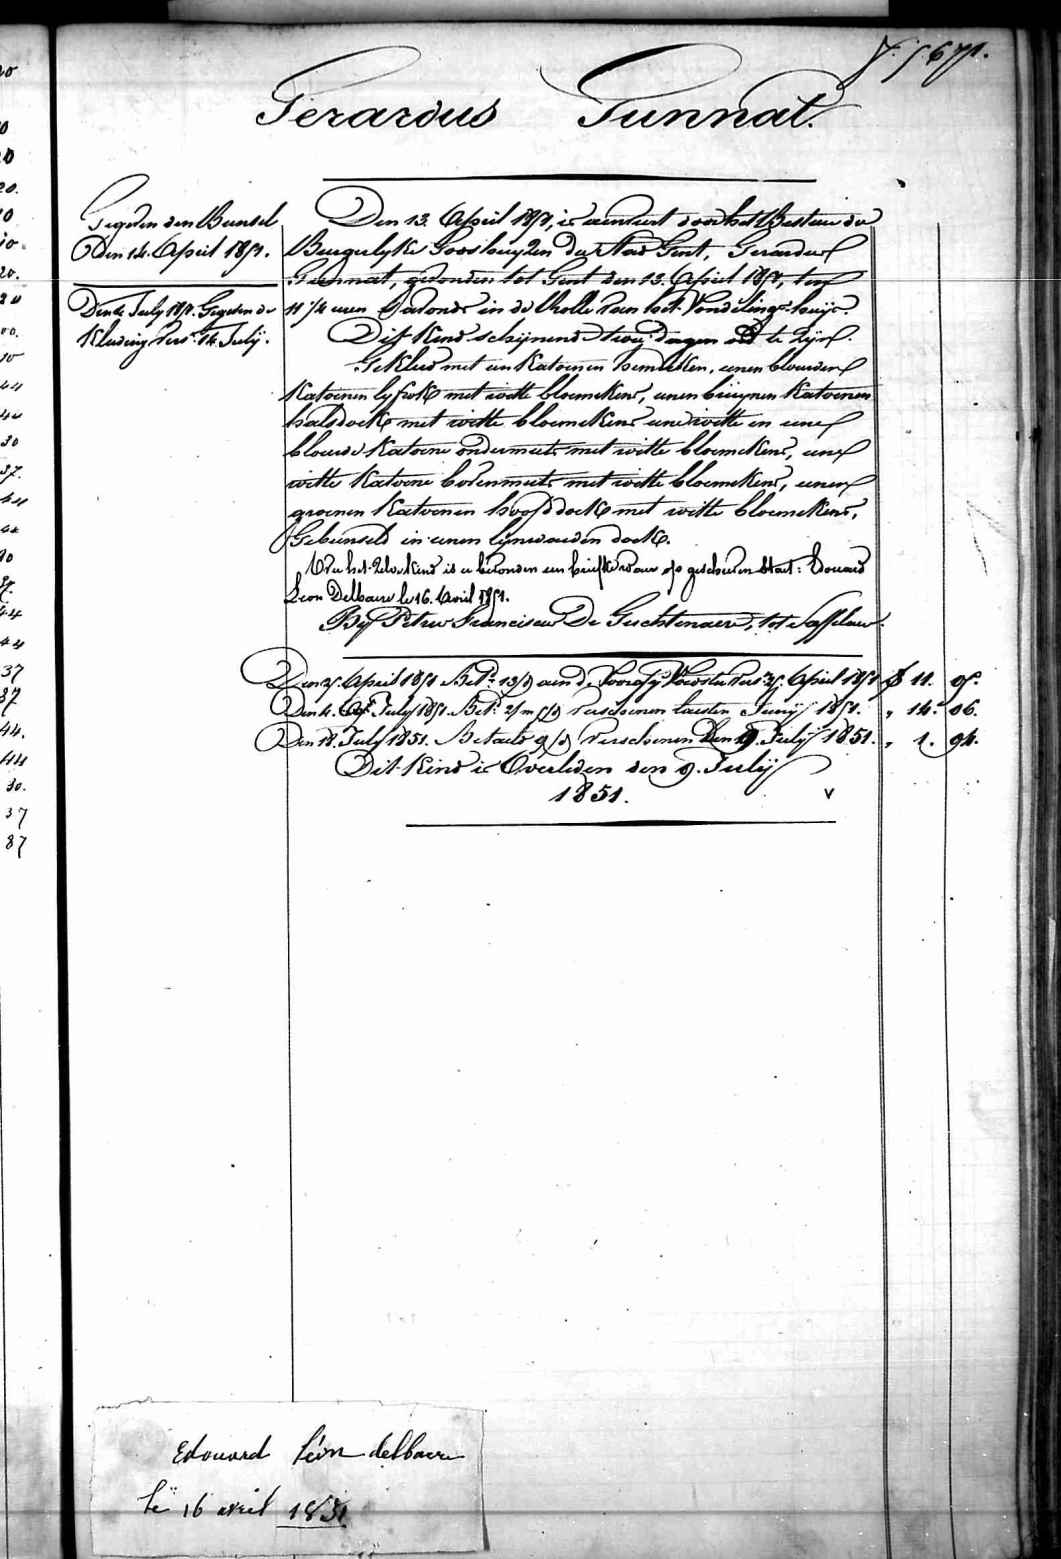 Gerardus Gunnat.
Gegeven den Bunsel
Den 14. April 1851.
Den 4 July 1851. Gegeven de
Kleeding vers. 14 Julij.
Den 13. April 1851, is aenveert door het Bestuer der
Burgerlyke Godshuyzen der Stad Gent, Gerardus
Gunnat, gevonden tot Gent den 13. April 1851, ten
11 1/2 uren s'avonds in de Rolle van het Vondelings-huys.
Dit kind schijnende twee dagen oud te zyn.
Gekleed met een katoenen hemdeken, eenen blauwen
katoenen lyfrok met witte bloemekens, eenen bruynen katoenen
halsdoek met witte bloemekens eene witte en eene
blauwe katoene ondermuts met witte bloemekens, eene
witte katoene bovenmuts met witte bloemekens, eenen
groenen katoenen hoofddoek met witte bloemekens,
Gebunseld in eenen lynwaeden doek.
Op het zelve kind is er bevonden een briefke waer op geschreven staet: Edouard
Leon Delbaere le 16. Avril 1851.
By Petrus Franciscus De Guchtenaere, tot Saffelaere.
April 1851 April 1851 f 11. 05.
Den 4. July 1851. Bet. 2/m verschenen laesten Junij 1851. " 14. 06.
Den 18. July 1851. Betaeld 9/d verschenen den 9. Julij 1851. " 1. 94.
Dit kind is Overleden den 9. Julij
1851.
Edouard Léon delbaere
le 16 avril 1851